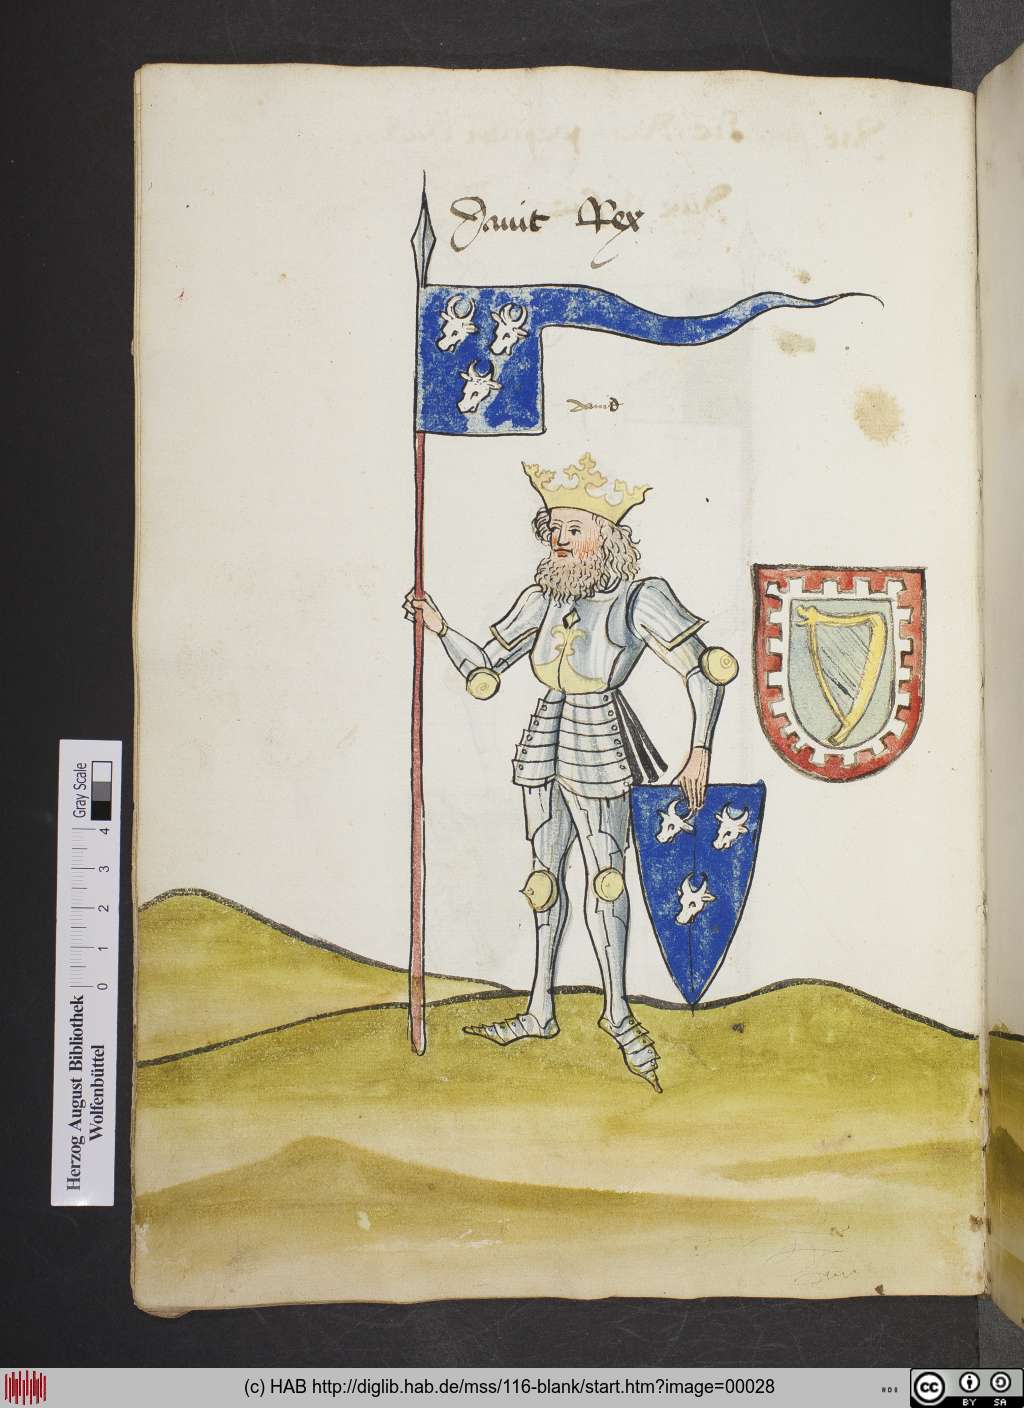 Dauit Rex
dauid
Gray Scale
0 1 2 3 4
Herzog August Bibliothek
Wolfenbüttel
(c) HAB http://diglib.hab.de/mss/116-blank/start.htm?image=00028
cc
BY SA